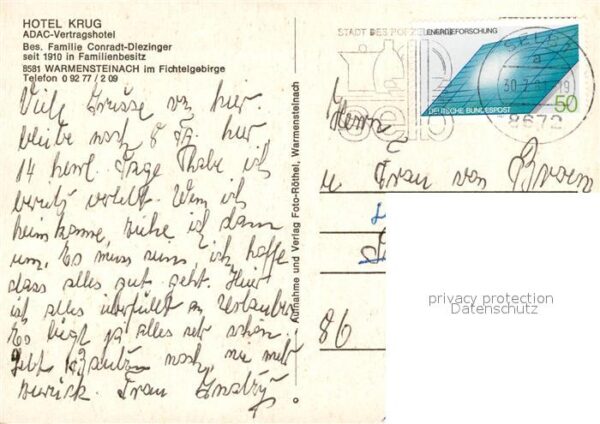 HOTEL KRUG
ADAC-Vertragshotel
Bes. Familie Conradt-Diezinger
seit 1910 in Familienbesitz
8581 WARMENSTEINACH im Fichtelgebirge
Telefon 0 92 77 / 2 09
Viele Grüsse von hier.
bleibe noch 8 Tg. hier
14 herrl. Tage habe ich
bereits verlebt. Wenn ich
heim komme, ziehe ich dann
um. Es muss sein, ich hoffe
dass alles gut geht. Hier
ist alles überfüllt an Urlauber
Es liegt ja alles sehr schön.
zurück. Frau
Aufnahme und Verlag Foto-Röthel, Warmensteinach
STADT DES PORZELLANS
ENERGIEFORSCHUNG
DEUTSCHE BUNDESPOST
50
SELB 2
a
8672
Herrn
u Frau von
86
privacy protection
Datenschutz